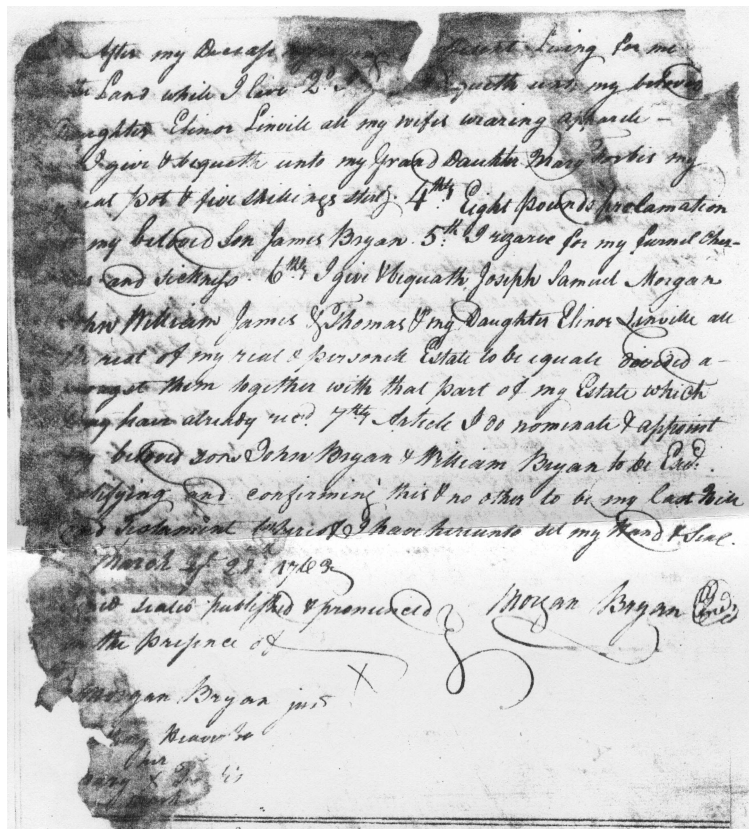 After my Deceass Living for me
Land while I live 2d bequeth unto my beloved
Daughter Elinor Linvile all my wifes wearing apparele -
I give & bequeth unto my Grand Daughter Mary Forbis my
pot & five shilings 4thly Eight pounds proclamation
my beloved Son James Bryan. 5th I rezarve for my furnel Char-
and sickness. 6thly I give & bequath Joseph Samuel Morgan
John William James & Thomas & my Daughter Elinor Linvile all
rest of my real & personele Estate to be equale devided a-
mongst them together with that part of my Estate which
hair already recd. 7thly Article I do nominate & appoint
my beloved sons John Bryan & William Bryan to be Exrs.
Ratifying and confirming this & no other to be my Last Will
and Testament whereof I have hereunto set my Hand & Seal.
March 28th 1763
sealed published & pronunced Morgan Bryan
in the presence of
Morgan Bryan junr
her
X